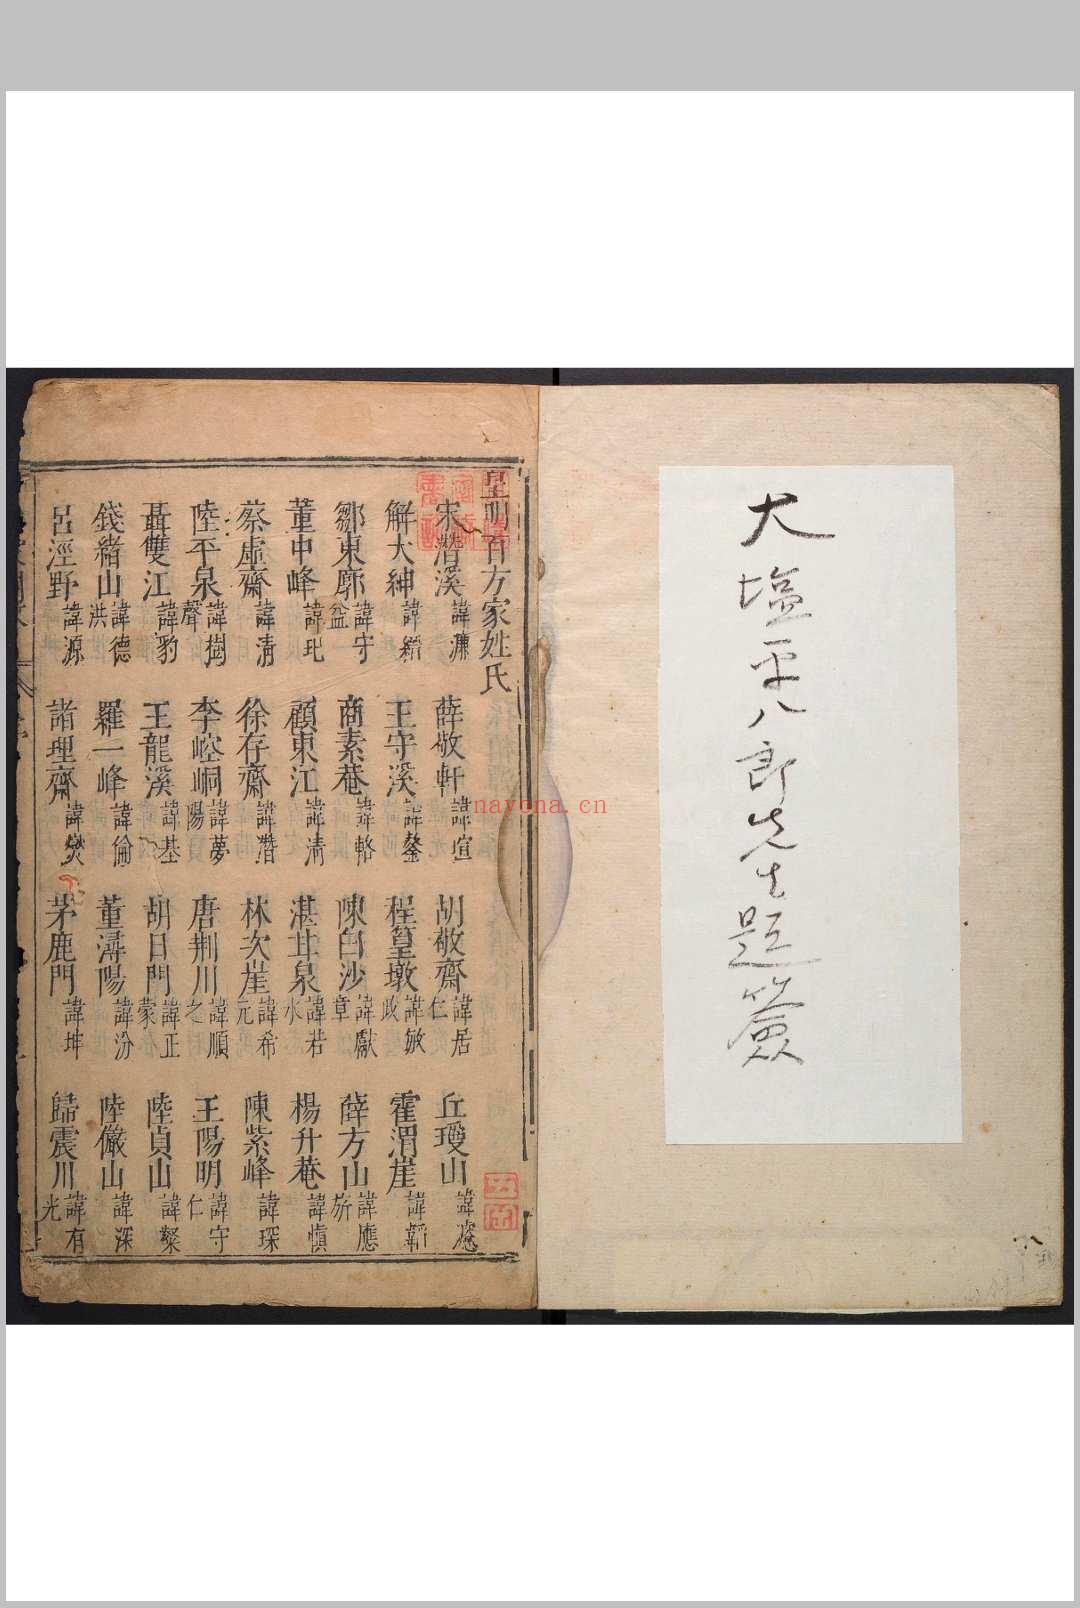 大塩平八郎先生題簽
皇明百方家姓氏
宋潛溪 諱濂 薛敬軒 諱瑄 胡敬齋 諱居仁 丘瓊山 諱濬
解大紳 諱縉 王守溪 諱鏊 程篁墩 諱敏政 霍渭崖 諱韜
鄒東廓 諱守益 商素菴 諱輅 陳白沙 諱獻章 薛方山 諱應旂
董中峰 諱玘 顧東江 諱清 湛甘泉 諱若水 楊升菴 諱慎
蔡虛齋 諱清 徐存齋 諱潛 林次崖 諱希元 陳紫峰 諱琛
陸平泉 諱樹聲 李崆峒 諱夢陽 唐荆川 諱順之 王陽明 諱守仁
聶雙江 諱豹 王龍溪 諱基 胡日門 諱正蒙 陸貞山 諱粲
錢緒山 諱德洪 羅一峰 諱倫 董潯陽 諱汾 陸儼山 諱深
呂涇野 諱源 諸理齋 諱燮 茅鹿門 諱坤 歸震川 諱有光
nayona.cn